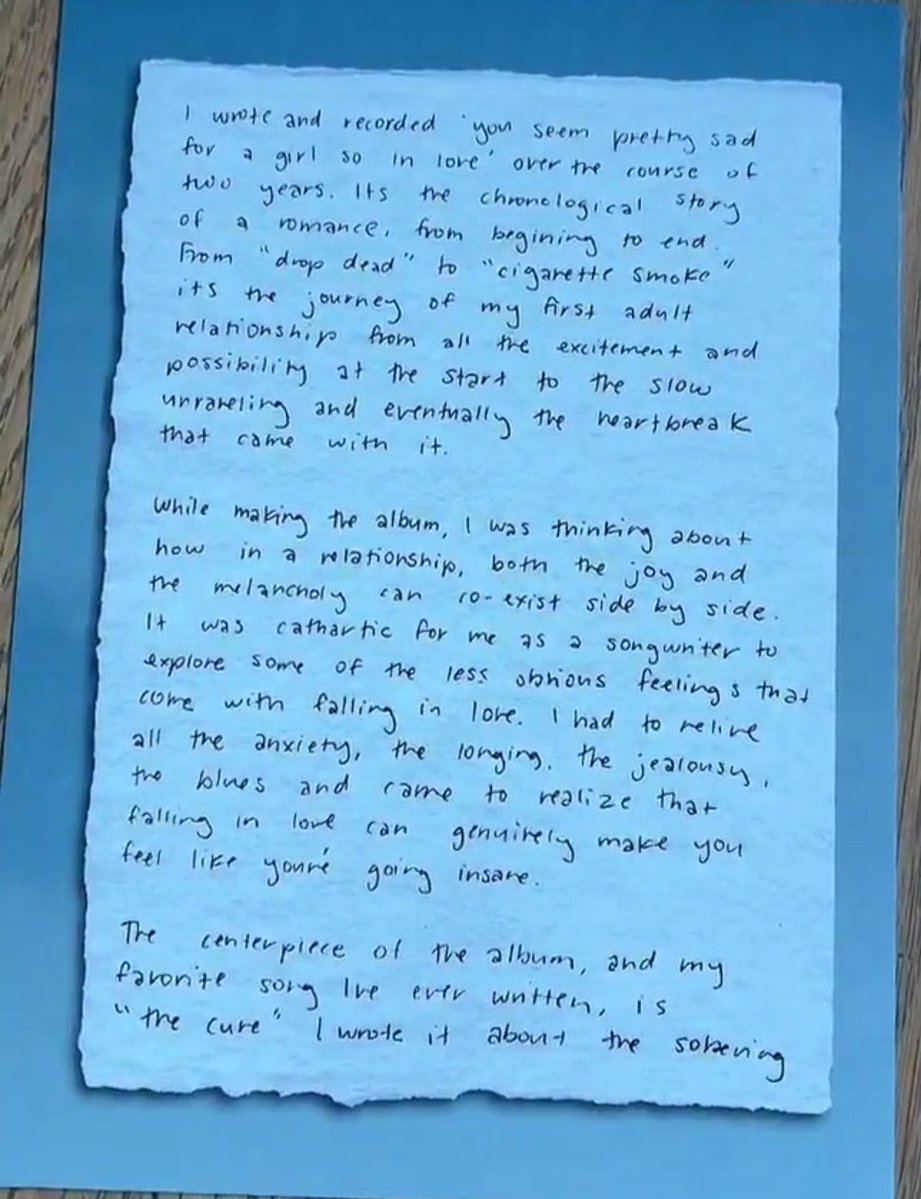 I wrote and recorded 'you seem pretty sad
for a girl so in love' over the course of
two years. Its the chronological story
of a romance, from begining to end.
From "drop dead" to "cigarette smoke"
its the journey of my first adult
relationship from all the excitement and
possibility at the start to the slow
unraveling and eventually the heartbreak
that came with it.
While making the album, I was thinking about
how in a relationship, both the joy and
the melancholy can co-exist side by side.
It was cathartic for me as a songwriter to
explore some of the less obvious feelings that
come with falling in love. I had to relive
all the anxiety, the longing, the jealousy,
the blues and came to realize that
falling in love can genuinely make you
feel like you're going insane.
The centerpiece of the album, and my
favorite song I've ever written, is
"the cure" I wrote it about the sobering